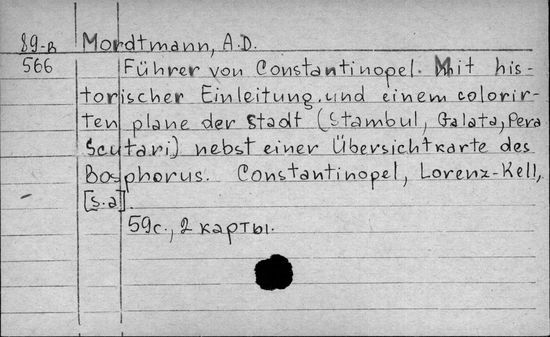 89-В Mordtmann, A.D.
566 Führer von Constantinopel. Mit his-
torischer Einleitung, und einem colorir-
ten plane der stadt (Stambul, Galata, Pera
Scutari) nebst einer Übersichtkarte des
Bosphorus. Constantinopel, Lorenz-Kell,
[s.a].
59с., 2 карты.